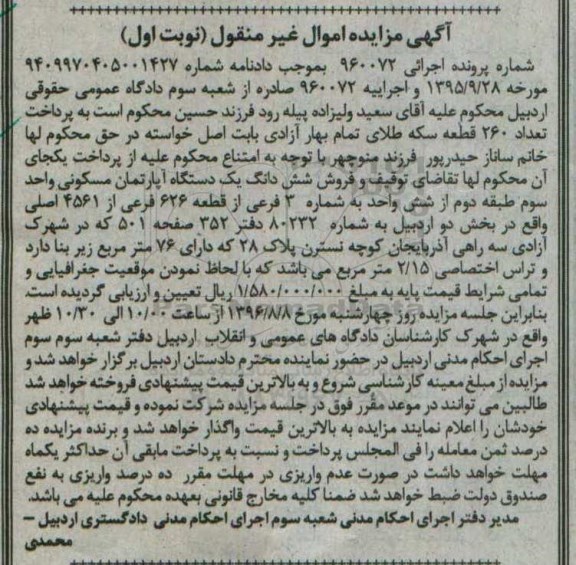 آگهی مزایده اموال غیر منقول (نوبت اول)
شماره پرونده اجرائی ۹۶۰۰۷۲ بموجب دادنامه شماره ۹۴۰۹۹۷۰۴۰۵۰۰۱۴۲۷
مورخه ۱۳۹۵/۹/۲۸ و اجراییه ۹۶۰۰۷۲ صادره از شعبه سوم دادگاه عمومی حقوقی
اردبیل محکوم علیه آقای سعید ولیزاده پیله رود فرزند حسین محکوم است به پرداخت
تعداد ۲۶۰ قطعه سکه طلای تمام بهار آزادی بابت اصل خواسته در حق محکوم لها
خانم ساناز حیدرپور فرزند منوچهر با توجه به امتناع محکوم علیه از پرداخت یکجای
آن محکوم لها تقاضای توقیف و فروش شش دانگ یک دستگاه آپارتمان مسکونی واحد
سوم طبقه دوم از شش واحد به شماره ۳ فرعی از قطعه ۶۲۶ فرعی از ۴۵۶۱ اصلی
واقع در بخش دو اردبیل به شماره ۸۰۲۳۲ دفتر ۳۵۲ صفحه ۵۰۱ که در شهرک
آزادی سه راهی آذربایجان کوچه نسترن پلاک ۲۸ که دارای ۷۶ متر مربع زیر بنا دارد
و تراس اختصاصی ۲/۱۵ متر مربع می باشد که با لحاظ نمودن موقعیت جغرافیایی و
تمامی شرایط قیمت پایه به مبلغ ۱/۵۸۰/۰۰۰/۰۰۰ ریال تعیین و ارزیابی گردیده است.
بنابراین جلسه مزایده روز چهارشنبه مورخ ۱۳۹۶/۸/۸ از ساعت ۱۰/۰۰ الی ۱۰/۳۰ ظهر
واقع در شهرک کارشناسان دادگاه های عمومی و انقلاب اردبیل دفتر شعبه سوم سوم
اجرای احکام مدنی اردبیل در حضور نماینده محترم دادستان اردبیل برگزار خواهد شد و
مزایده از مبلغ معینه کارشناسی شروع و به بالاترین قیمت پیشنهادی فروخته خواهد شد
طالبین می توانند در موعد مقرر فوق در جلسه مزایده شرکت نموده و قیمت پیشنهادی
خودشان را اعلام نمایند مزایده به بالاترین قیمت واگذار خواهد شد و برنده مزایده ده
درصد ثمن معامله را فی المجلس پرداخت و نسبت به پرداخت مابقی آن حداکثر یکماه
مهلت خواهد داشت در صورت عدم واریزی در مهلت مقرر ده درصد واریزی به نفع
صندوق دولت ضبط خواهد شد ضمنا کلیه مخارج قانونی بعهده محکوم علیه می باشد.
مدیر دفتر اجرای احکام مدنی شعبه سوم اجرای احکام مدنی دادگستری اردبیل –
محمدی